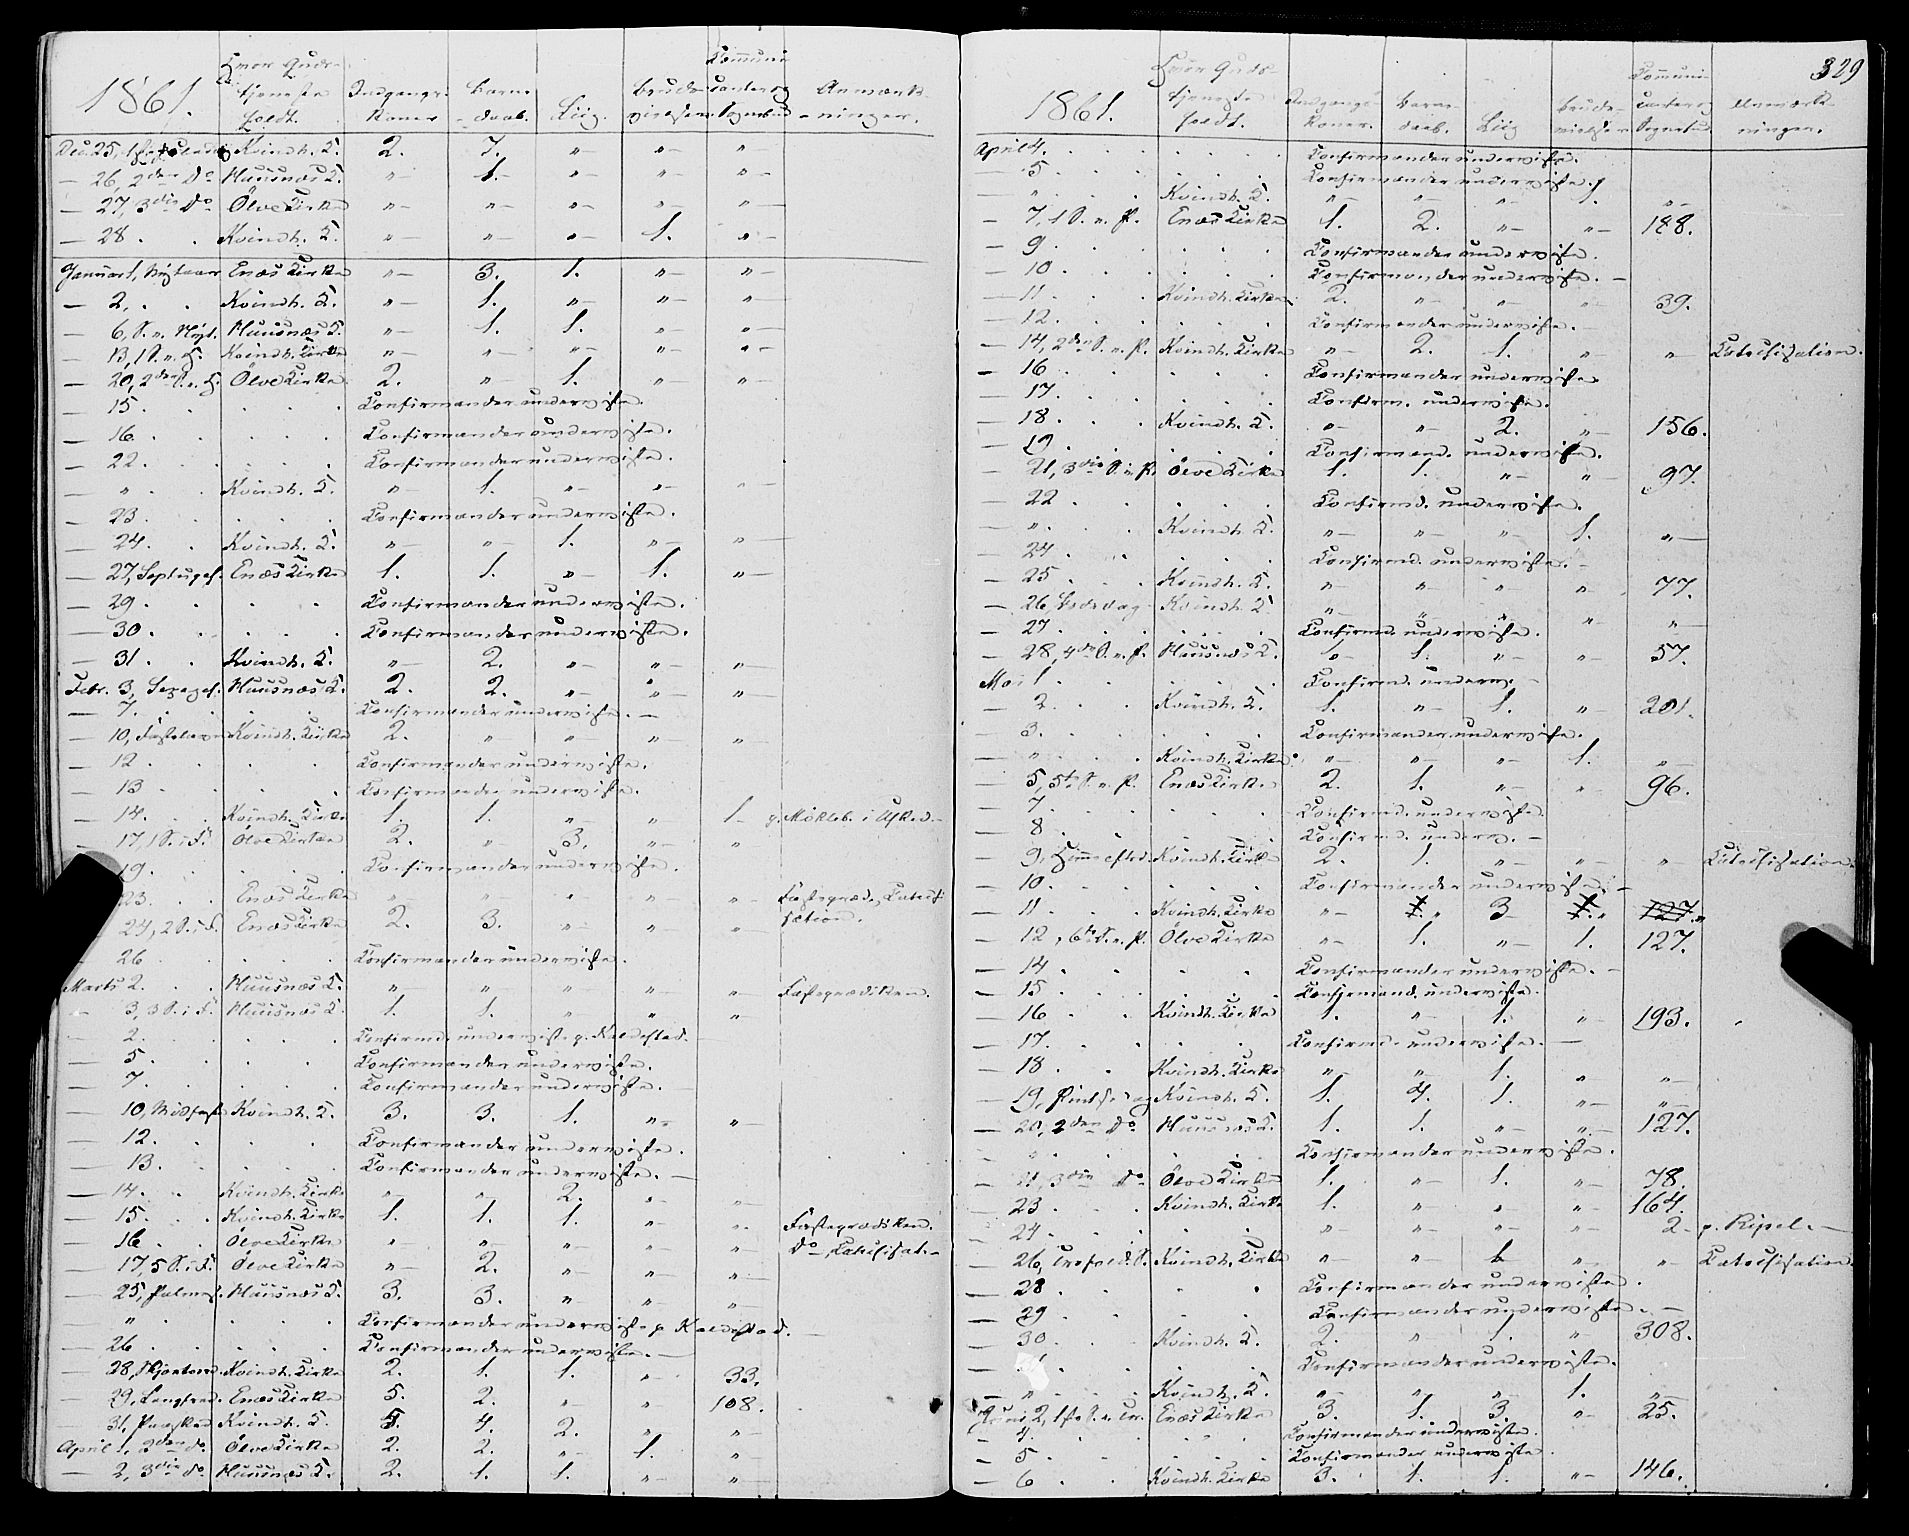 1861.
Hvor Guds-
tjeneste
holdt.
Indgangs-
koner
Barne-
daab.
Liig.
Brude-
vielser
Communi-
canter og
Sognebud
Anmærk-
ninger.
Dec. 25, 1ste Juledag Kvindh. K. 2. 7. " " "
— 26, 2den Do Huusnæs K. " 1. " " "
— 27, 3die Do Ölve Kirke " " " " "
— 28. Kvindh. K. " " " 1. "
Januar 1, Nytaar Enæs Kirke " 3. 1. " "
— 2, Kvindh. K. " 1. " " "
— 6, S. e. Nyt. Huusnæs K. " 1. 1. " "
— 13, 1 S. e. H. Kvindh. Kirke " " " " "
— 20, 2den S. e. H. Ölve Kirke 2. " 1. " "
— 15. Confirmander underviste.
— 16. Confirmander underviste.
— 22. Confirmander underviste.
— " Kvindh. K. " 1. " " "
— 23. Confirmander underviste.
— 24. Kvindh. K. " " 1. " "
— 27, Septuges. Enæs Kirke 1. 1. " 1. "
— 29. Confirmander underviste.
— 30. Confirmander underviste.
— 31. Kvindh. K. " 2. " " "
Febr. 3, Sexages. Huusnæs K. 2. 2. " " "
— 7. Confirmander underviste.
— 10, Fastelavn Kvindh. Kirke 2. " " " "
— 12. Confirmander underviste.
— 13. Confirmander underviste.
— 14. Kvindh. Kirke 1. 1. " " 1 p. Mökleb. i Usked
— 17, 1 S. i F. Ölve Kirke 2. " 3. " "
19. Confirmander underviste.
23. Enæs Kirke " " " " " Fastepræd., Catechi-
24, 2 S. i F. Enæs Kirke 2. 3. " " " sation.
26 Confirmander underviste.
Marts 2. Huusnæs K. " " " " " Fasteprædiken.
— 3, 3 S. i F. Huusnæs K. 1. 1. " " "
— 2. Confirmd. underviste p. Kaldestad.
— 5. Confirmander underviste.
— 7. Confirmander underviste.
— 10, Midfaste Kvindh. K. 3. 3. 1. " "
— 12. Confirmander underviste.
— 13. Confirmander underviste.
— 14. Kvindh. Kirke " " 2. " "
— 15. Kvindh. Kirke 1. 1. 1. " " Fasteprædiken.
— 16 Ölve Kirke " " " " " Do, Catechisat.
— 17, 5 S. i F. Ölve Kirke " 2. " " "
— 25, Palmes. Huusnæs K. 3. 3. " " "
— " Confirmander underviste p. Kaldestad.
— 26 Confirmander underviste.
— 28, Skjærtorsd. Kvindh. Kirke 2. 1. 1. " 33.
— 29, Langfred. Enæs Kirke 5. 2. " " 108.
— 31, Paasked. Kvindh. K. 5. 4. 2. " "
April 1, 2den do. Ölve Kirke 2. 2. " 1. "
— 2, 3die do Huusnæs K. 2. 1. 1. " "
329
1861.
Hvor Guds-
tjeneste
holdt.
Indgangs-
koner.
Barne-
daab.
Liig
Brude-
vielser
Communi-
canter og
Sognebud.
Anmærk-
ninger.
April 4. Confirmander underviste.
— 5 Confirmander underviste.
— " Kvindh. K. " " " 1. "
— 7, 1 S. e. P. Enæs Kirke 1. 2. " " 188.
— 9 Confirmander underviste.
— 10 Confirmander underviste.
— 11 Kvindh. Kirke 2. " " " 39.
— 12. Confirmander underviste.
— 14, 2den S. e. P. Kvindh. Kirke " 2. 1. " " Catechisation.
— 16 Confirmander underviste.
— 17. Confirm. underviste.
— 18. Kvindh. K. " " 2. " 156.
— 19 Confirmand. underviste.
— 21, 3die S. e. P. Ölve Kirke 1. 1. " " 97.
— 22 Confirmd. underviste.
— " Kvindh. K. " " " 1. "
— 24 Confirmd. underviste.
— 25 Kvindh. K. " " " " 77.
— 26, Bededag Kvindh. K " " " " "
— 27. Confirmd. underviste.
— 28, 4de S. e. P. Huusnæs K. 1. 1. " " 57.
Mai 1. Confirmd. underv.
— 2 Kvindh. K. 1. " 1. " 201.
— 3. Confirmander underviste.
— " Kvindh. Kirke " " " 1. "
— 5, 5te S. e. P. Enæs Kirke 2. 1. " " 96.
— 7 Confirmd. underviste.
— 8 Confirmd. underv.
— 9, Himmelfartsd. Kvindh. Kirke 2. 1. " " " Catechisation.
— 10 Confirmander underviste.
— 11 Kvindh. Kirke " 1. " 3 1. " 127. "
— 12, 6te S. e. P. Ölve Kirke " 1. " 1. 127.
— 14 Confirmander underviste.
— 15 Confirmand. underviste.
— 16 Kvindh. Kirke 1. " 1. " 193.
— 17. Confirmd. underviste.
— 18 Kvindh. Kirke " " 1. " "
— 19, Pintsedag Kvindh. K. 1. 4. 1. " "
— 20, 2den Do Huusnæs K. 1. 1. " " 127.
— " Confirmander underviste.
— 21, 3die Do Ölve Kirke 1. " 1. " 78.
— 23 Kvindh. Kirke 1. " " " 164.
— 24 " " " " 2 p. Ripel.
— 26, Trefold. S. Kvindh. Kirke " " 1. " " Catechisation.
— 28 Confirmander underviste.
— 29 Confirmander underviste.
— 30 Kvindh. K. 2. " 1. " 308.
Confirmander underviste.
— " Kvindh. K. " " " 1. "
Juni 2, 1ste S. e. Tr. Enæs Kirke 3. 1. 3 " 25.
— 4. Confirmander underviste.
— 5 Confirmander underviste.
— 6 Kvindh. Kirke 3. 1. 1. " 146.